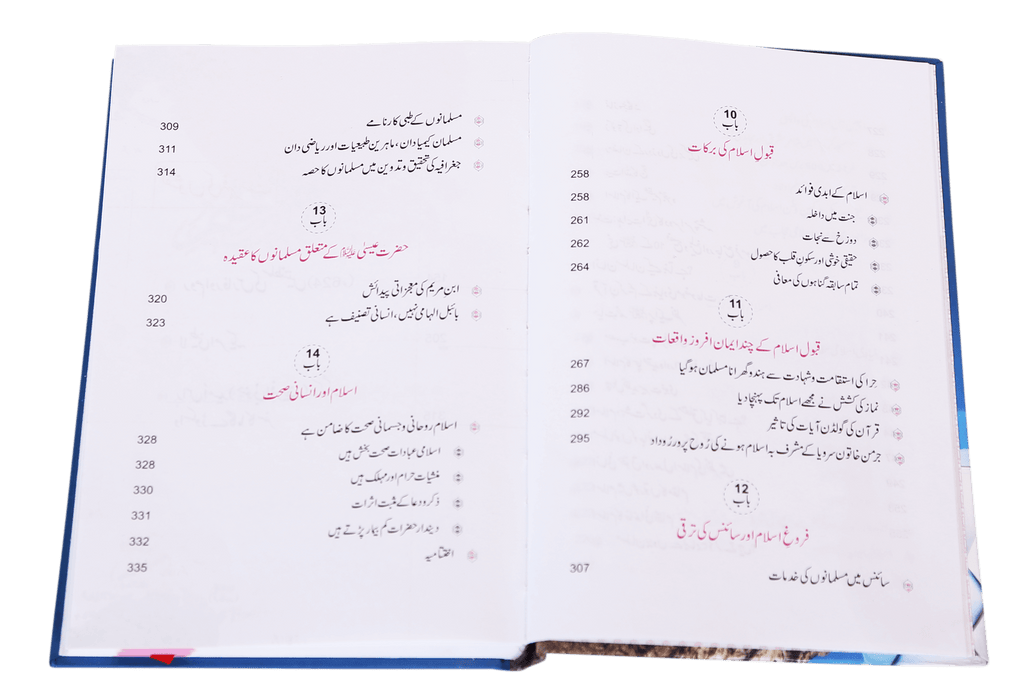 10
باب
قبولِ اسلام کی برکات
اسلام کے ابدی فوائد 258
جنت میں داخلہ 258
دوزخ سے نجات 261
حقیقی خوشی اور سکون قلب کا حصول 262
تمام سابقہ گناہوں کی معافی 264
11
باب
قبول اسلام کے چند ایمان افروز واقعات
حرا کی استقامت و شہادت سے ہندو گھرانا مسلمان ہوگیا 267
نماز کی کشش نے مجھے اسلام تک پہنچا دیا 286
قرآن کی گولڈن آیات کی تاثیر 292
جرمن خاتون سرویا کے مشرف بہ اسلام ہونے کی رُوح پرور رُوداد 295
12
باب
فروغ اسلام اور سائنس کی ترقی
سائنس میں مسلمانوں کی خدمات 307
مسلمانوں کے طبی کارنامے 309
مسلمان کیمیا دان، ماہرین طبیعیات اور ریاضی دان 311
جغرافیہ کی تحقیق و تدوین میں مسلمانوں کا حصہ 314
13
باب
حضرت عیسیٰ علیہ السلام کے متعلق مسلمانوں کا عقیدہ
ابن مریم کی معجزاتی پیدائش 320
بائبل الہامی نہیں، انسانی تصنیف ہے 323
14
باب
اسلام اور انسانی صحت
اسلام روحانی و جسمانی صحت کا ضامن ہے 328
اسلامی عبادات صحت بخش ہیں 328
منشیات حرام اور مہلک ہیں 330
ذکر و دعا کے مثبت اثرات 331
دیندار حضرات کم بیمار پڑتے ہیں 332
اختتامیہ 335